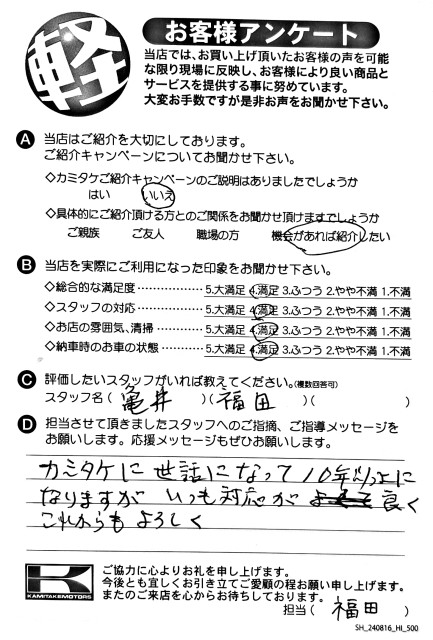 軽
お客様アンケート
当店では、お買い上げ頂いたお客様の声を可能
な限り現場に反映し、お客様により良い商品と
サービスを提供する事に努めています。
大変お手数ですが是非お声をお聞かせ下さい。
A 当店はご紹介を大切にしております。
ご紹介キャンペーンについてお聞かせ下さい。
◇カミタケご紹介キャンペーンのご説明はありましたでしょうか
はい いいえ
◇具体的にご紹介頂ける方とのご関係をお聞かせ頂けますでしょうか
ご親族 ご友人 職場の方 機会があれば紹介したい
B 当店を実際にご利用になった印象をお聞かせ下さい。
◇総合的な満足度‥‥‥‥‥ 5.大満足 4.満足 3.ふつう 2.やや不満 1.不満
◇スタッフの対応‥‥‥‥‥ 5.大満足 4.満足 3.ふつう 2.やや不満 1.不満
◇お店の雰囲気、清掃‥‥‥ 5.大満足 4.満足 3.ふつう 2.やや不満 1.不満
◇納車時のお車の状態‥‥‥ 5.大満足 4.満足 3.ふつう 2.やや不満 1.不満
C 評価したいスタッフがいれば教えてください。(複数回答可)
スタッフ名( 亀井 )( 福田 )( )
D 担当させて頂きましたスタッフへのご指摘、ご指導メッセージを
お願いします。応援メッセージもぜひお願いします。
カミタケに世話になって10年以上に
なりますが いつも対応が 良く
これからもよろしく
K
KAMITAKEMOTORS
ご協力に心よりお礼を申し上げます。
今後とも宜しくお引き立てご愛顧の程お願い申し上げます。
またのご来店を心からお待ちしております。
担当( 福田 )
SH_240816_HI_500